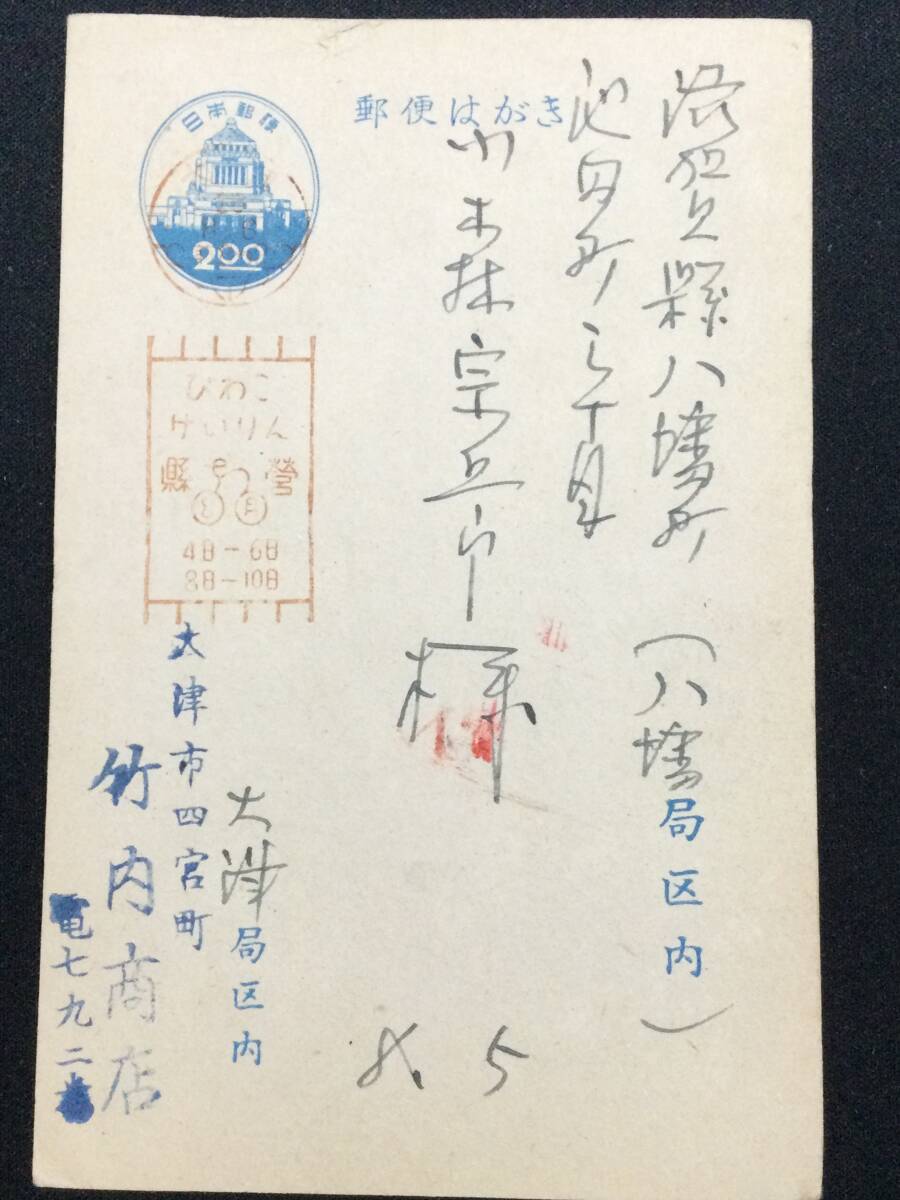 滋賀縣八幡町(八幡局区内)
池田町三丁目
小林宗五郎様
郵便はがき
日本郵便
2.00
びわこ
けいりん
縣営
月
4日-6日
8日-10日
大津局区内
大津市四宮町
竹内商店
電七九二
8.5